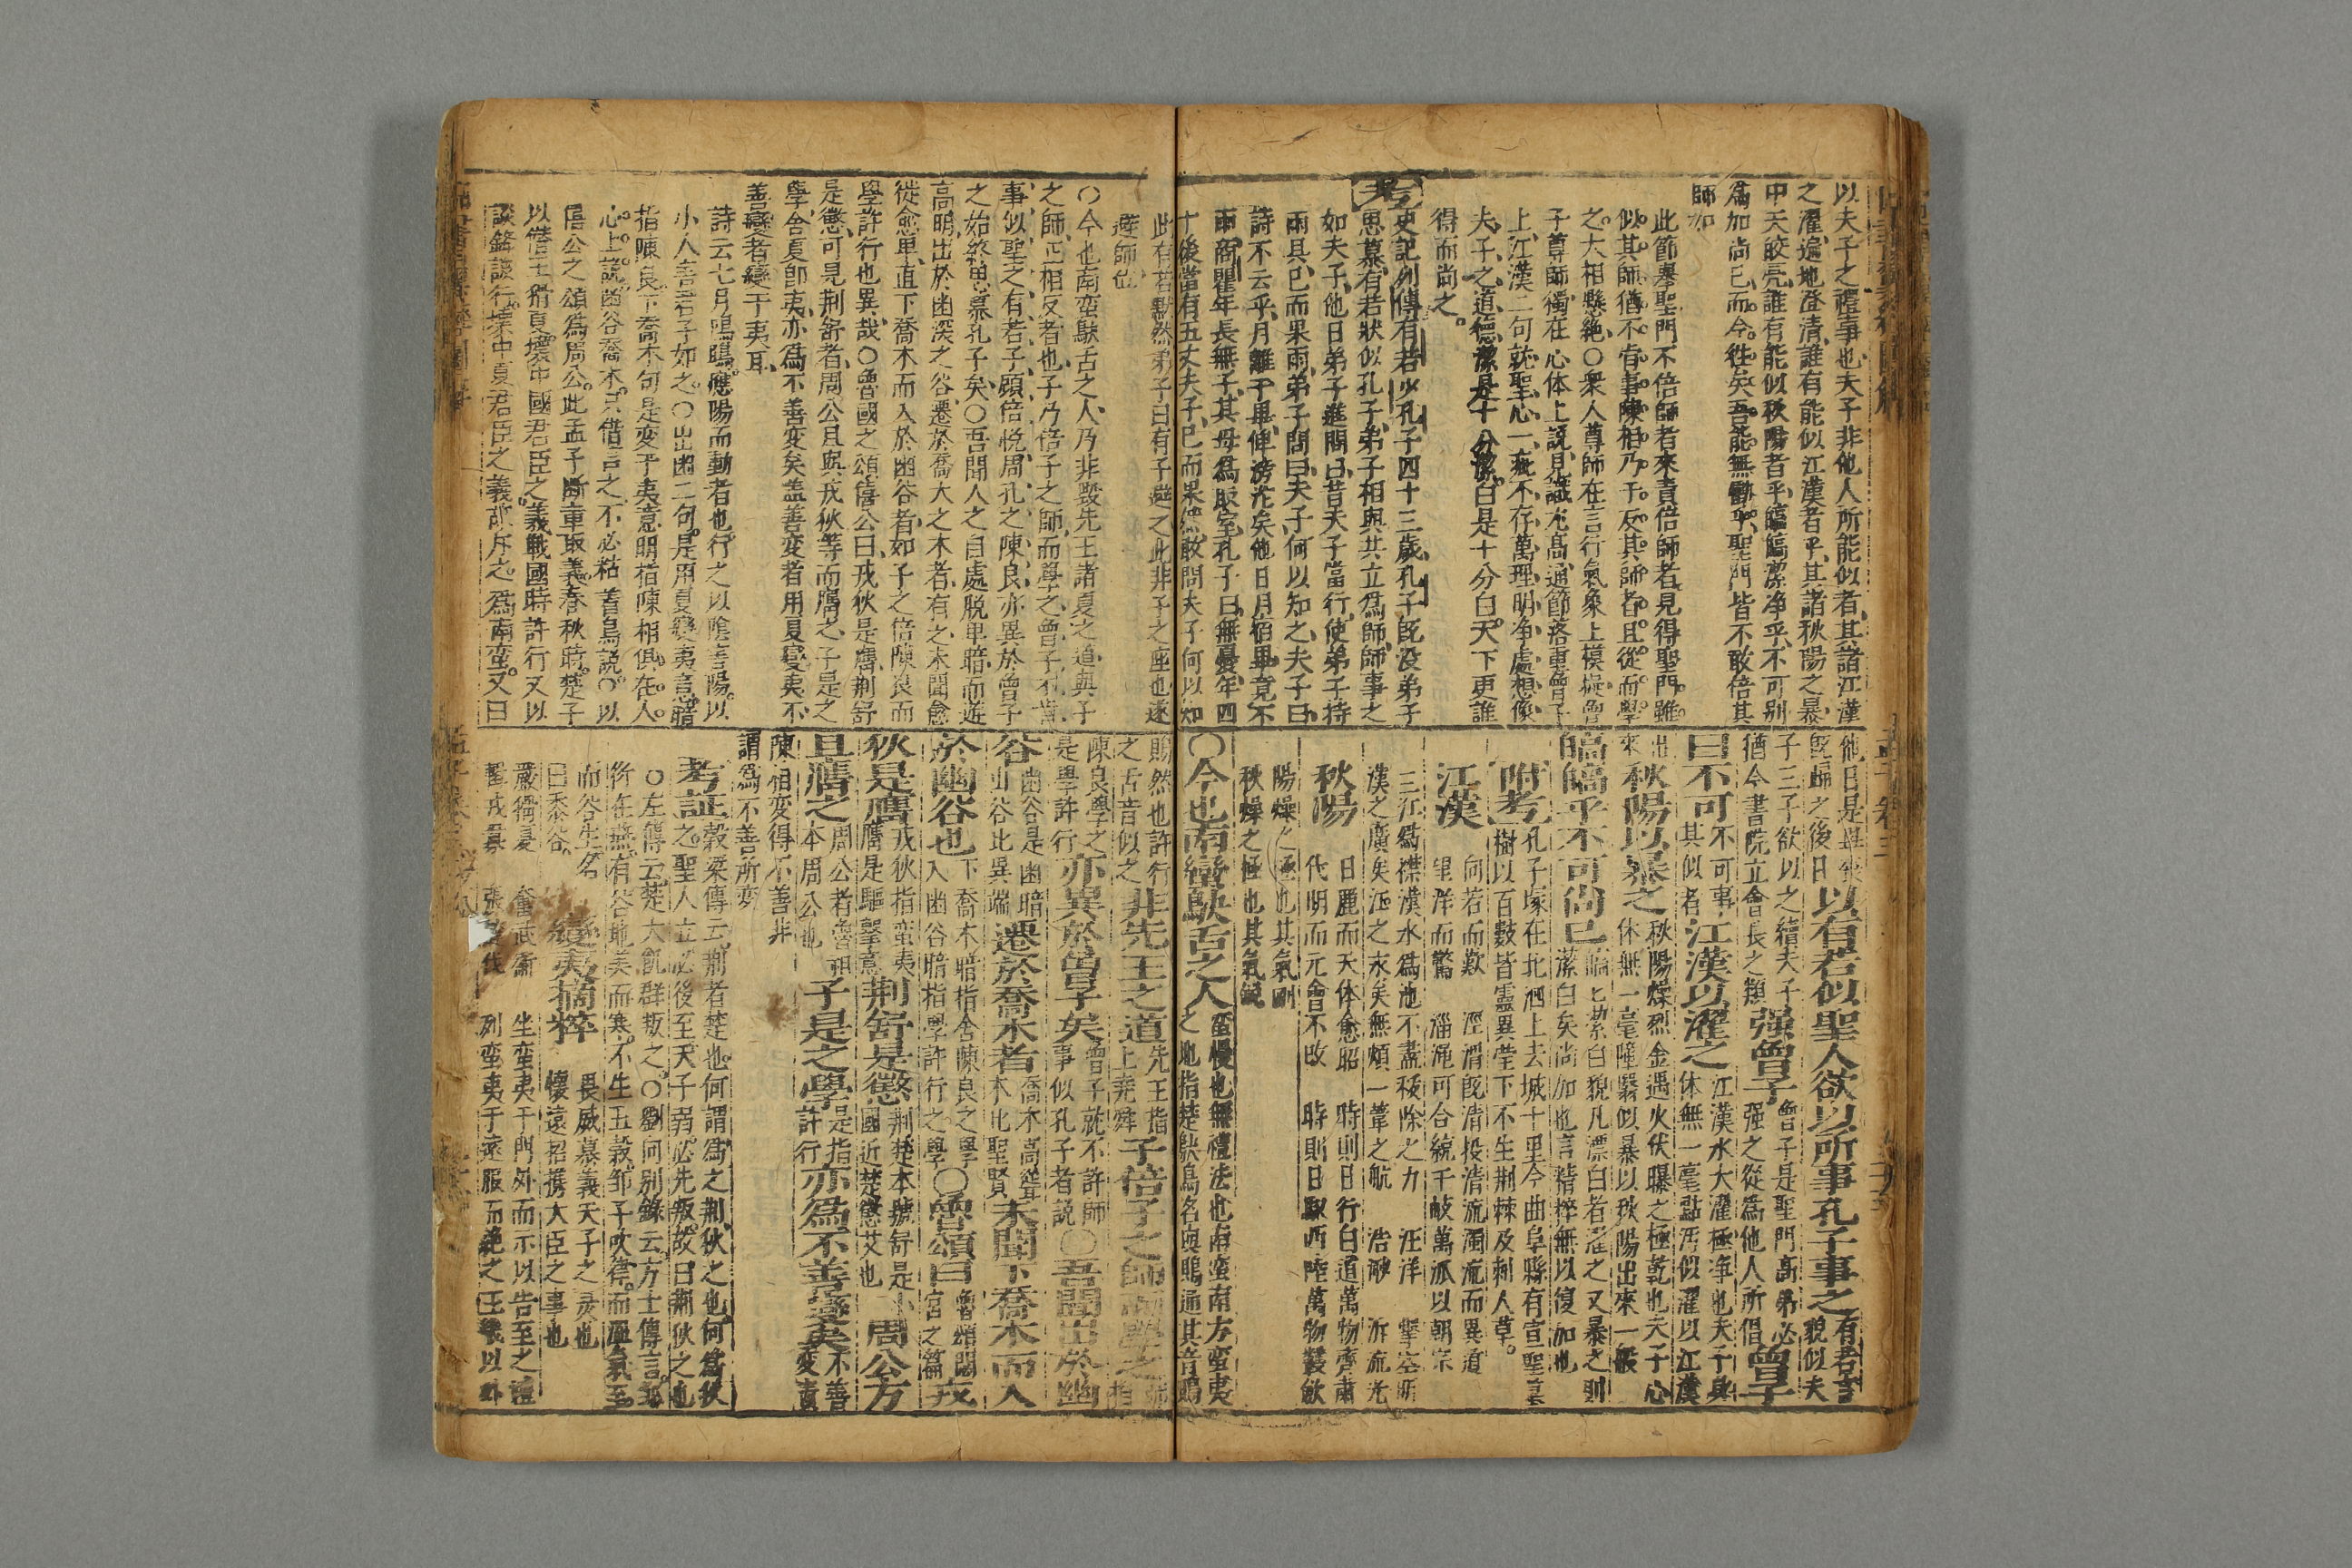 以夫子之禮事也夫子非他人所能似者其諸江漢
之濯遍地登清誰有能似江漢者乎其諸秋陽之暴
中天皎亮誰有能似秋陽者乎皜皜潔净乎不可别
為加尚已而今往矣吾能無
聖門皆不敢倍其
師如
此節舉聖門不倍師者來責倍師者見得聖門雖
似其師猶不肯事陳相乃于反其師者且從而學
之大相懸絶○衆人尊師在言行氣象上模擬曾
子尊師獨在心体上説見識尤高通節落重曾子
上江漢二句就聖心一疵不存萬理明净處想像
夫子之道德潔是十分潔白是十分白天下更誰
得而尚之
史記列傳有若少孔子四十三歲孔子既没弟子
思慕有若狀似孔子弟子相與共立為師師事之
如夫子他日弟子進問曰昔夫子當行使弟子持
雨具已而果雨弟子問曰夫子何以知之夫子曰
詩不云乎月離于畢俾滂沱矣他日月宿畢竟不
雨商瞿年長無子其母為取室孔子曰無憂年四
十後當有五丈夫子已而果然敢問夫子何以知
他日是
既歸之後日
以有若似聖人欲以所事孔子事之
有若言
貌似夫
子三子欲以之繼夫子
猶今書院立會長之類
强曾子
曾子是聖門高弟必
强之從為他人所倡
曾子
曰不可
不可事
其似者
江漢以濯之
江漢水大濯極净也夫子
体無一毫點污似濯以江漢
出來
秋陽以暴之
秋陽燥烈金遇火伏曝之極乾也夫子心
休無一毫曈曨似暴以秋陽出來一般
皜皜乎不可尚已
潔白矣尚加也言精粹無以復加也
附考
孔子塚在北泗上去城十里今曲阜縣有宣聖墓
樹以百數皆靈異塋下不生荆棘及刺人草
江漢
何若而歎 涇渭既清投清流濁流而異道
望洋而驚 淄澠可合統千岐萬派以朝宗
三江
漢水為池不盡
除之力 汪洋
漢之廣矣江之永矣無煩一葦之航 浩渺
流光
秋陽
日麗而天体愈昭 時則日行白道萬物齊肅
代明而元會不改 時則日馭西陸萬物斂
陽燥之極也其氣剛
秋燥之極也其氣
○今也南蠻鴃舌之人
蛮慢也無禮法也南蛮南方蛮夷
之地指楚鴃鳥名與鵙通其音鵙
此有若默然弟子曰有子避之此非子之座也遂
避師位
○今也南蛮鴃舌之人乃非毁先王諸夏之道與子
之師正相反者也子乃倍子之師而學之曾子不肯
事似聖之有若子顧倍悦周孔之陳良亦異於曾子
之始終思慕孔子矣○吾聞人之自處脱卑暗而遊
高明出於幽深之谷遷於喬大之木者有之未聞愈
從愈卑直下喬木而入於幽谷者如子之倍陳良而
學許行也異哉○魯國之頌僖公曰戎狄是膺荆舒
是懲可是荆舒者周公且與戎狄等而膺之子是之
學舍夏卽夷亦為不善変矣盖善変者用夏變夷不
善變者變于夷耳
詩云七月鳴鵙應陽而動者也行之以陰害陽以
小人害君子如之○出幽二句是用夏變夷意暗
指陳良下喬木句是変于夷意明指陳相俱在人
心上説幽谷喬木只借言之不必粘着鳥説○以
僖公之頌為周公此孟子斷章取義春秋時楚子
以僭王猾夏壞中國君臣之義戰國時許行又以
談鋒談行壞中夏君臣之義故斥之為南蛮又曰
鵙然也許行
之舌音似之
非先王之道
先王指
上堯舜
子倍子之師而學之
陳良學之
是學許行
亦異於曾子矣
曾子就不許師
事似孔子者説
○吾聞出於幽
谷
幽谷是幽暗
山谷比異端
遷於喬木者
喬木高聳
木比聖賢
未聞下喬木而入
於幽谷也
下喬木暗指舍陳良之學
入幽谷暗指學許行之學
○魯頌曰
魯頌閟
宮之篇
戎
狄是膺
戎狄指蛮夷
膺是驅擊意
荆舒是懲
荆楚本號舒是小
國近楚懲艾也
周公方
且膺之
周公者魯祖
本周公也
子是之學
是指
許行
亦為不善變矣
不善
変責
陳相変得不善非
謂為不善所変
考証
榖梁傳云荆者楚也何謂為之荆狄之也何為狄
之聖人立必後至天子弱必先叛故曰荆狄之也
○左傳云楚大飢群叛之○劉向别錄云方士傳言鄒
衍在燕有谷地美而寒不生五穀鄒子吹律而温氣至
而谷生名
曰黍谷
變夷摘粹
畏威慕義天子之灵也
懷遠招携大臣之事也
嚴猾夏 奮武衛 坐蛮夷于門外而示以告至之禮
列蛮夷于遠服而絶之王
以外